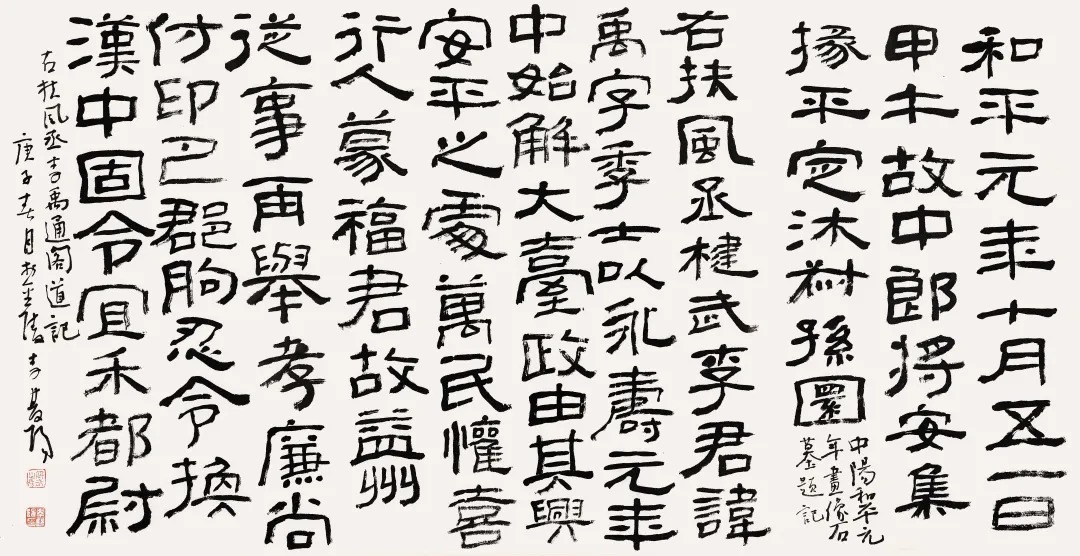 和平元年十月五一日
甲午故中郎将安集
掾平定沐叔孫園
中陽和平元
年畫像石
墓題記
右扶風丞楗武李君諱
禹字季士以永壽元年
中始解大臺政由其興
安平之處萬民懽喜
行人蒙福君故益州
從事再舉孝廉尚
付印巴郡朐忍令換
漢中固令宜禾都尉
右扶風丞李禹通閣道記
庚子春月於金陵李